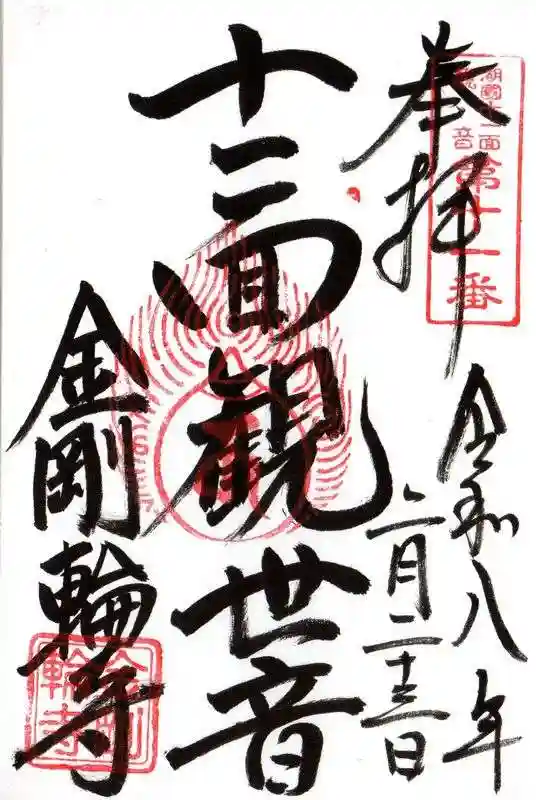 奉拝
湖國十一面
観音
第十一番
令和八年
二月二十三日
十一面観世音
金剛輪寺
金剛
輪寺